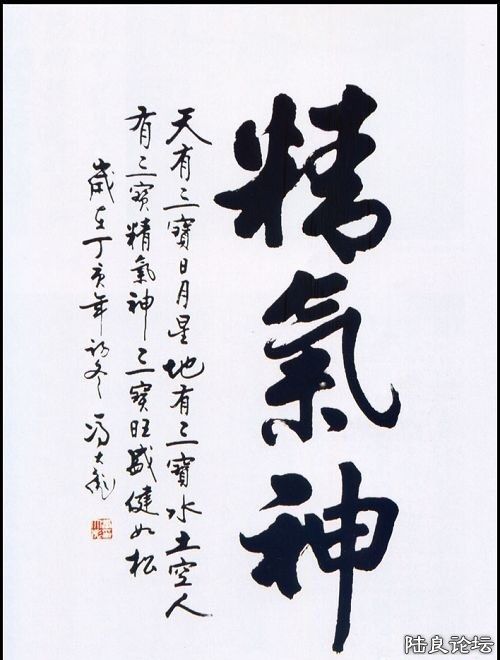 精氣神
天有三寶日月星地有三寶水土空人
有三寶精氣神三寶旺盛健如松
歲在丁亥年初冬馮大彪
陆良论坛